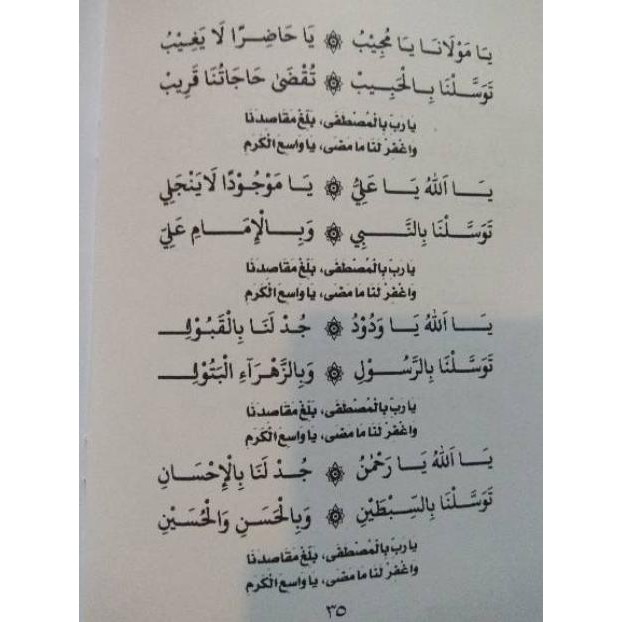 يَا مَوْلَانَا يَا مُجِيْبُ ۞ يَا حَاضِرًا لَا يَغِيْبُ
تَوَسَّلْنَا بِالْحَبِيبْ ۞ تُقْضَىٰ حَاجَاتُنَا قَرِيبْ
يَا رَبِّ بِالْمُصْطَفَى، بَلِّغْ مَقَاصِدَنَا
وَاغْفِرْ لَنَا مَا مَضَى، يَا وَاسِعَ الْكَرَمِ
يَا اَللهُ يَا عَلِيُّ ۞ يَا مَوْجُودًا لَا يَنْجَلِي
تَوَسَّلْنَا بِالنَّبِي ۞ وَبِالْإِمَامِ عَلِيّ
يَا رَبِّ بِالْمُصْطَفَى، بَلِّغْ مَقَاصِدَنَا
وَاغْفِرْ لَنَا مَا مَضَى، يَا وَاسِعَ الْكَرَمِ
يَا اَللهُ يَا وَدُوْدُ ۞ جُدْ لَنَا بِالْقَبُوْلِ
تَوَسَّلْنَا بِالرَّسُوْلِ ۞ وَبِالزَّهْرَآءِ الْبَتُوْلِ
يَا رَبِّ بِالْمُصْطَفَى، بَلِّغْ مَقَاصِدَنَا
وَاغْفِرْ لَنَا مَا مَضَى، يَا وَاسِعَ الْكَرَمِ
يَا اَللهُ يَا رَحْمٰنُ ۞ جُدْ لَنَا بِالْإِحْسَانِ
تَوَسَّلْنَا بِالسِّبْطَيْنِ ۞ وَبِالْحَسَنِ وَالْحُسَيْنِ
يَا رَبِّ بِالْمُصْطَفَى، بَلِّغْ مَقَاصِدَنَا
وَاغْفِرْ لَنَا مَا مَضَى، يَا وَاسِعَ الْكَرَمِ
٣٥